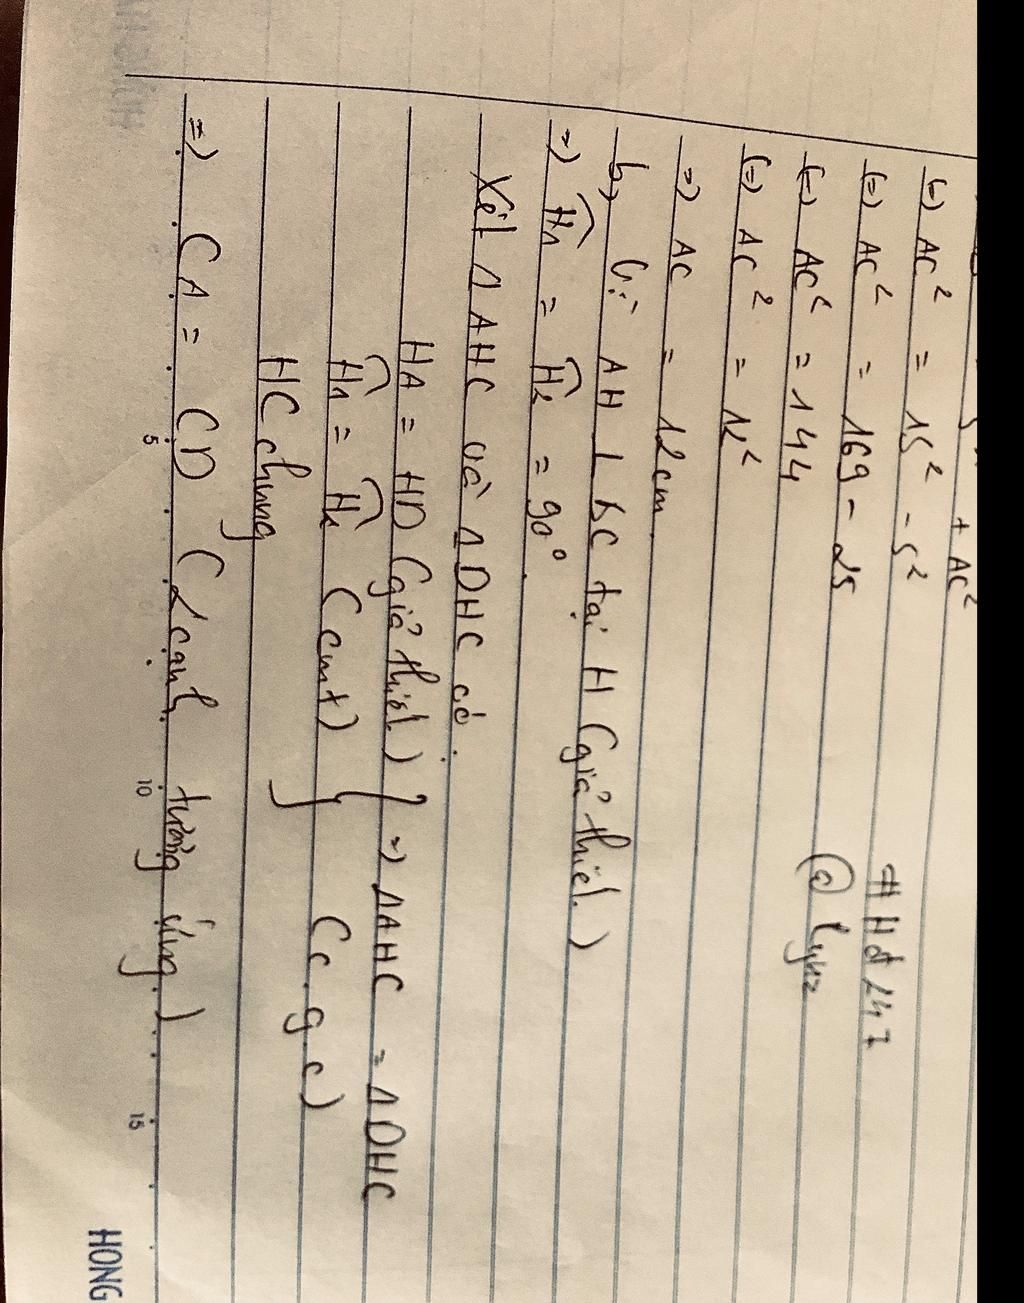 + AC²
(=) AC² = 15² - 5²
(=) AC² = 169 - 25
#Hđ247
(=) AC² = 144
@lynz
(=) AC² = 12²
=) AC = 12cm
b, Vì AH ⊥ BC tại H (giả thiết)
=) Ĥ₁ = Ĥ₂ = 90°
Xét Δ AHC và Δ DHC có:
HA = HD (giả thiết) } =) ΔAHC = ΔDHC
Ĥ₁ = Ĥ₂ (cmt) (c.g.c)
HC chung
=) CA = CD (2 cạnh tương ứng)
5 10 15
HONG